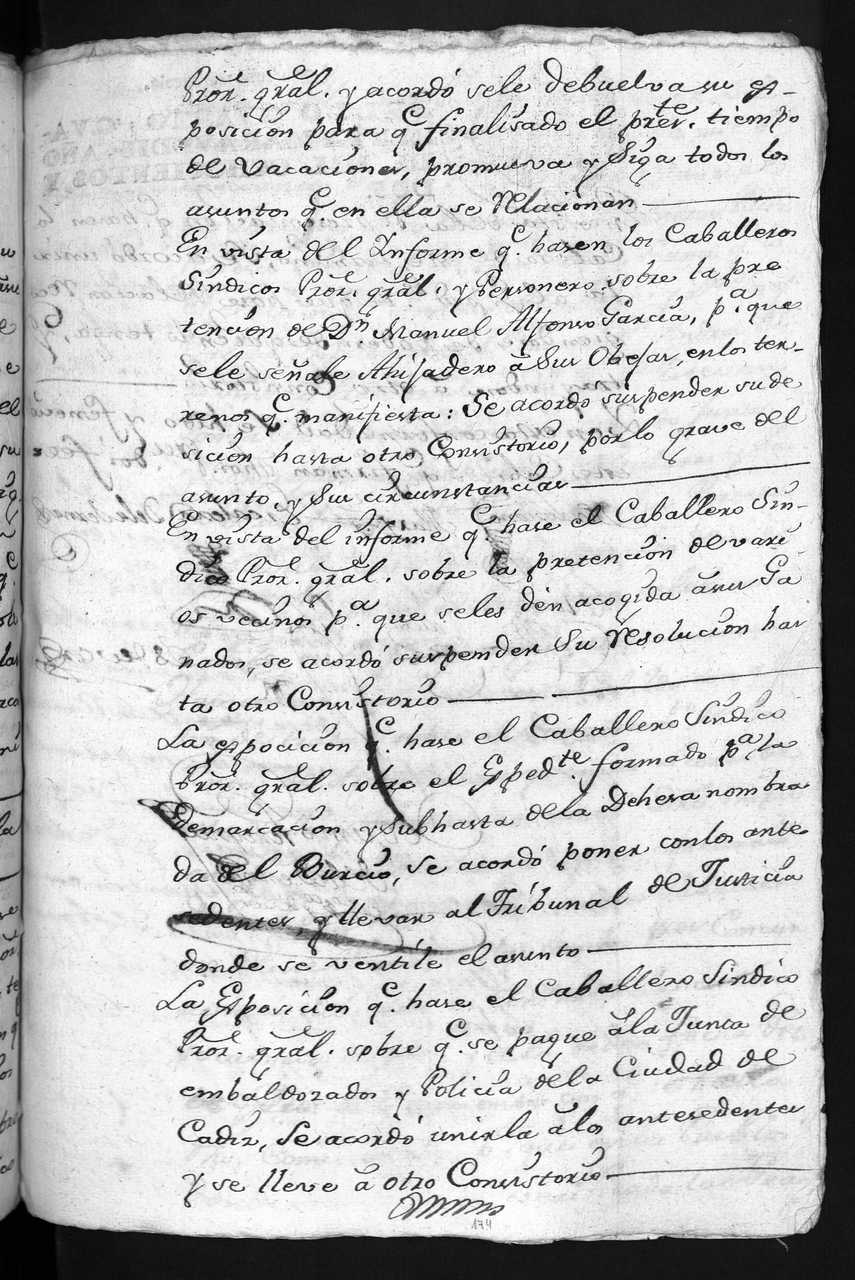 Pror. gral. y acordó sele debuelva su es-
posición para q.e finalisado el pres.te tiempo
de vacaciones, promueva y Siga todos los
asuntos q.e en ella se Relacionan
En vista del Informe q.e hasen los Caballeros
Sindicos Pror. gral. y Personero sobre la pre
tención de Dn. Manuel Alfonso García, p.a que
sele señale Ahijadero á Sus Obejas, en los ter-
renos q.e manifiesta: Se acordó suspender su de
sición hasta otro Consistorio, por lo grave del
asunto, y Sus circunstancias
En vista del informe q.e hase el Caballero Sin-
dico Pror. gral. sobre la pretención de vari
os vecinos p.a que seles den acogida á sus Ga
nados, se acordó suspender Su Resolución has
ta otro Consistorio
La esposición q.e hase el Caballero Sindico
Pror. gral. sobre el Esped.te formado p.a la
Demarcación y Subhasta de la Dehesa nombra
da del Burcio, se acordó poner con los ante
sedentes, y llevar al Tribunal de Justicia
donde se ventile el asunto
La Esposición q.e hase el Caballero Sindico
Pror. gral. sobre q.e se pague á la Junta de
embaldosados y Policía de la Ciudad de
Cadiz, Se acordó unirla á los antesedentes
y se lleve á otro Consistorio
174